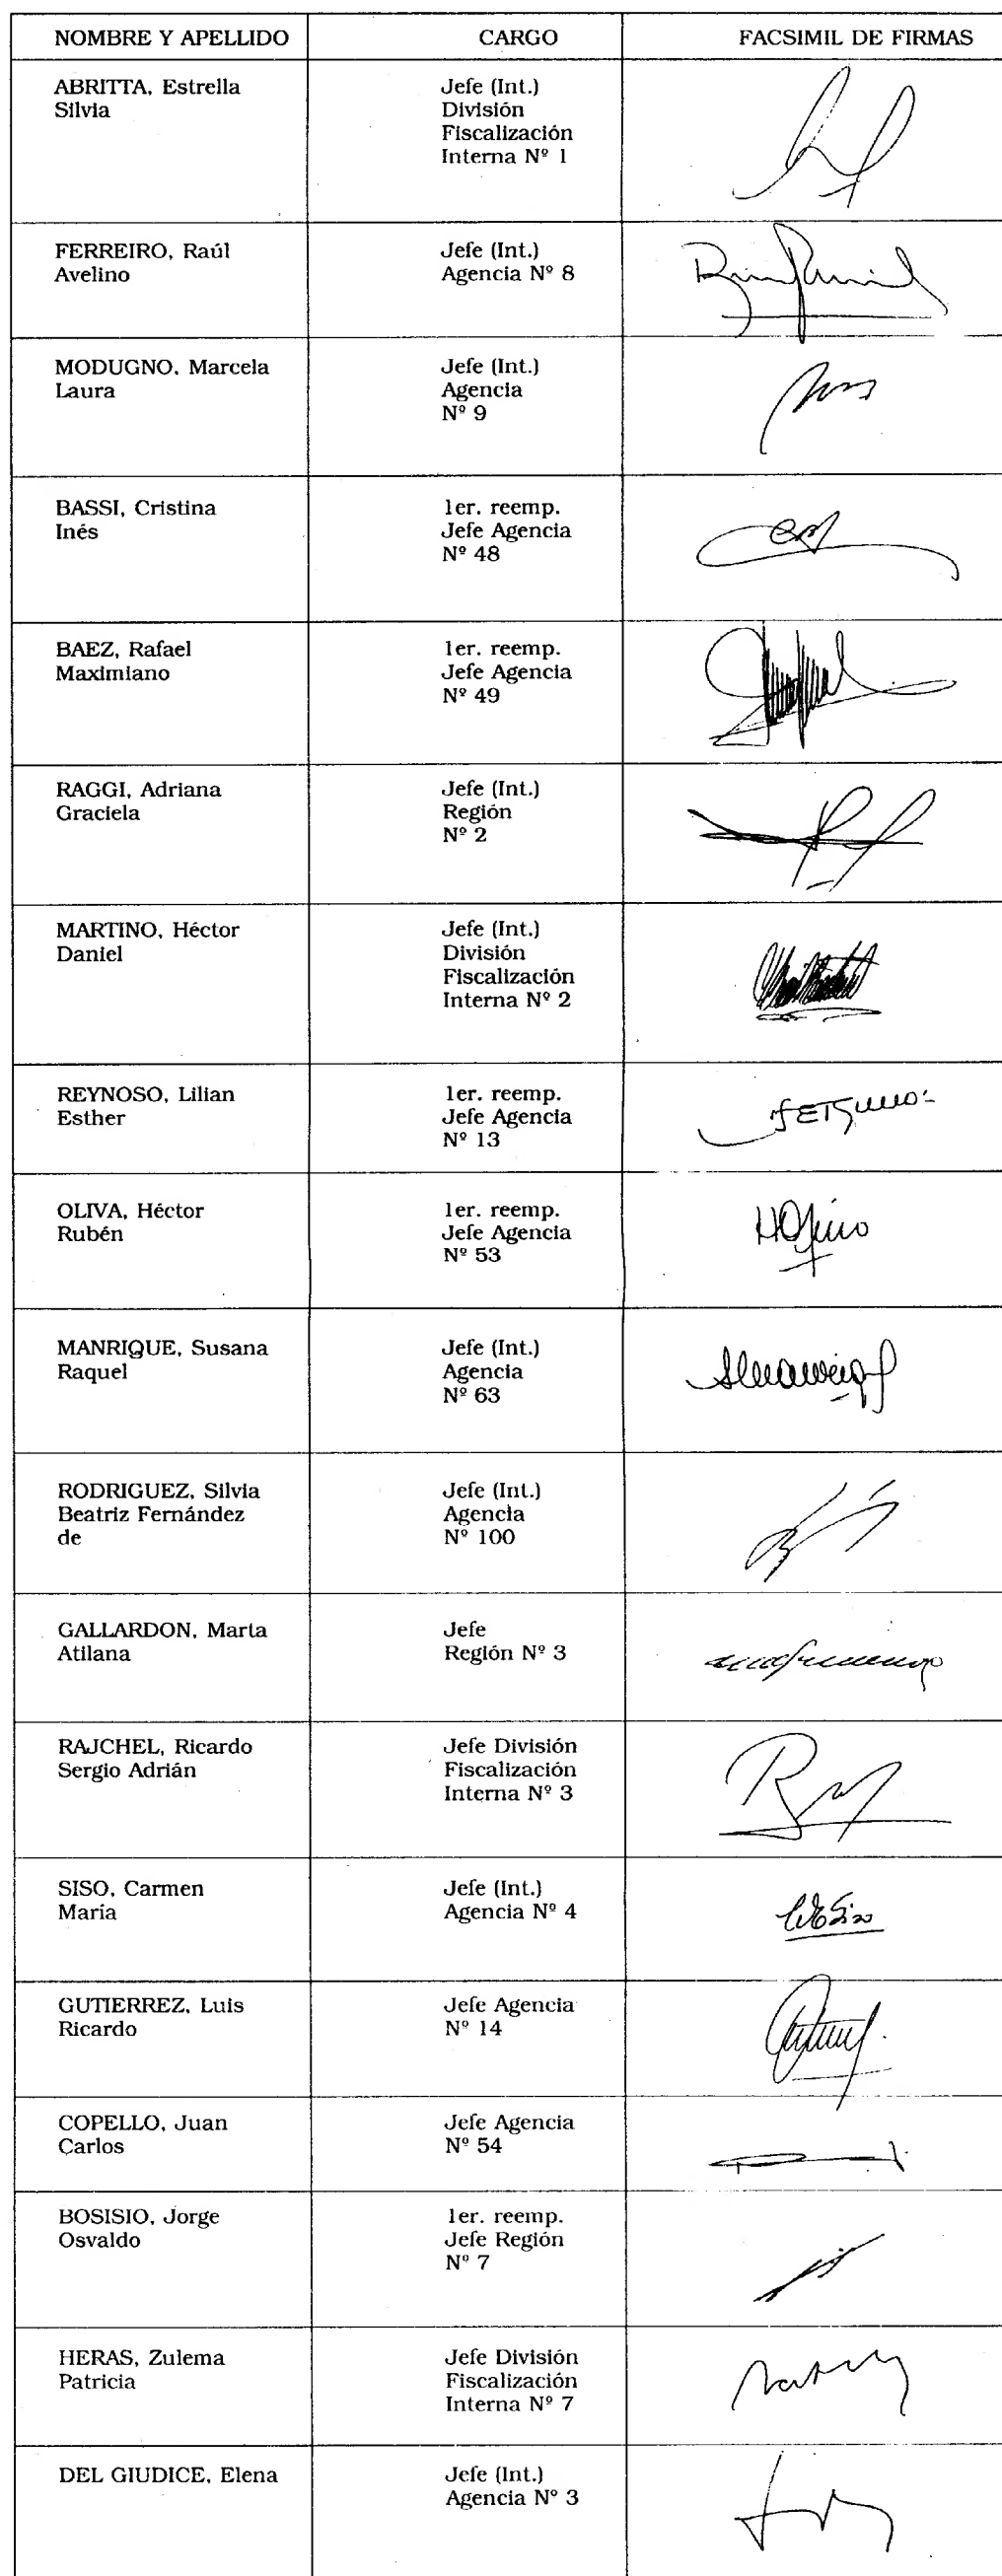 NOMBRE Y APELLIDO CARGO FACSIMIL DE FIRMAS
ABRITTA, Estrella
Silvia
Jefe (Int.)
División
Fiscalización
Interna Nº 1
FERREIRO, Raúl
Avelino
Jefe (Int.)
Agencia Nº 8
MODUGNO, Marcela
Laura
Jefe (Int.)
Agencia
Nº 9
BASSI, Cristina
Inés
1er. reemp.
Jefe Agencia
Nº 48
BAEZ, Rafael
Maximiano
1er. reemp.
Jefe Agencia
Nº 49
RAGGI, Adriana
Graciela
Jefe (Int.)
Región
Nº 2
MARTINO, Héctor
Daniel
Jefe (Int.)
División
Fiscalización
Interna Nº 2
REYNOSO, Lilian
Esther
1er. reemp.
Jefe Agencia
Nº 13
OLIVA, Héctor
Rubén
1er. reemp.
Jefe Agencia
Nº 53
MANRIQUE, Susana
Raquel
Jefe (Int.)
Agencia
Nº 63
RODRIGUEZ, Silvia
Beatriz Fernández
de
Jefe (Int.)
Agencia
Nº 100
GALLARDON, Marta
Atilana
Jefe
Región Nº 3
RAJCHEL, Ricardo
Sergio Adrián
Jefe División
Fiscalización
Interna Nº 3
SISO, Carmen
María
Jefe (Int.)
Agencia Nº 4
GUTIERREZ, Luis
Ricardo
Jefe Agencia
Nº 14
COPELLO, Juan
Carlos
Jefe Agencia
Nº 54
BOSISIO, Jorge
Osvaldo
1er. reemp.
Jefe Región
Nº 7
HERAS, Zulema
Patricia
Jefe División
Fiscalización
Interna Nº 7
DEL GIUDICE, Elena
Jefe (Int.)
Agencia Nº 3